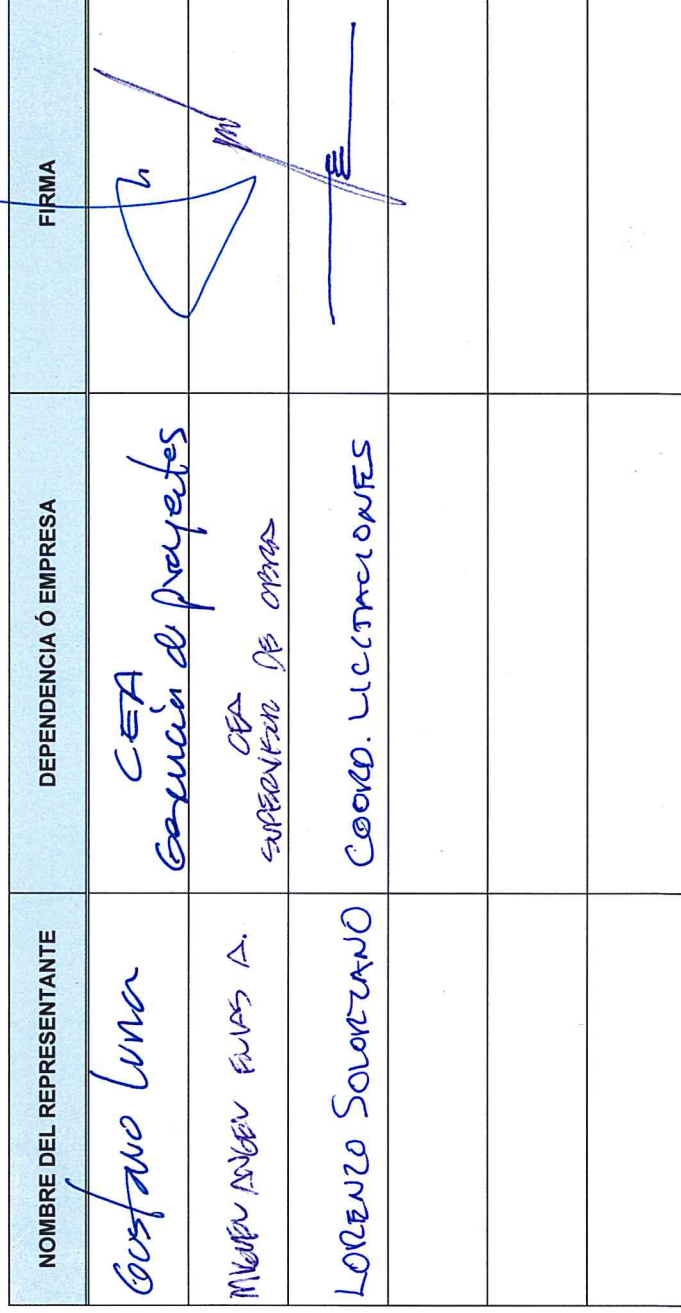 NOMBRE DEL REPRESENTANTE
DEPENDENCIA Ó EMPRESA
FIRMA
Gustavo Luna
CEA
Gerencia de proyectos
MIGUEL ANGEL ELIAS A.
CEA
SUPERVISOR DE OBRA
LORENZO SOLORZANO
COORD. LICITACIONES